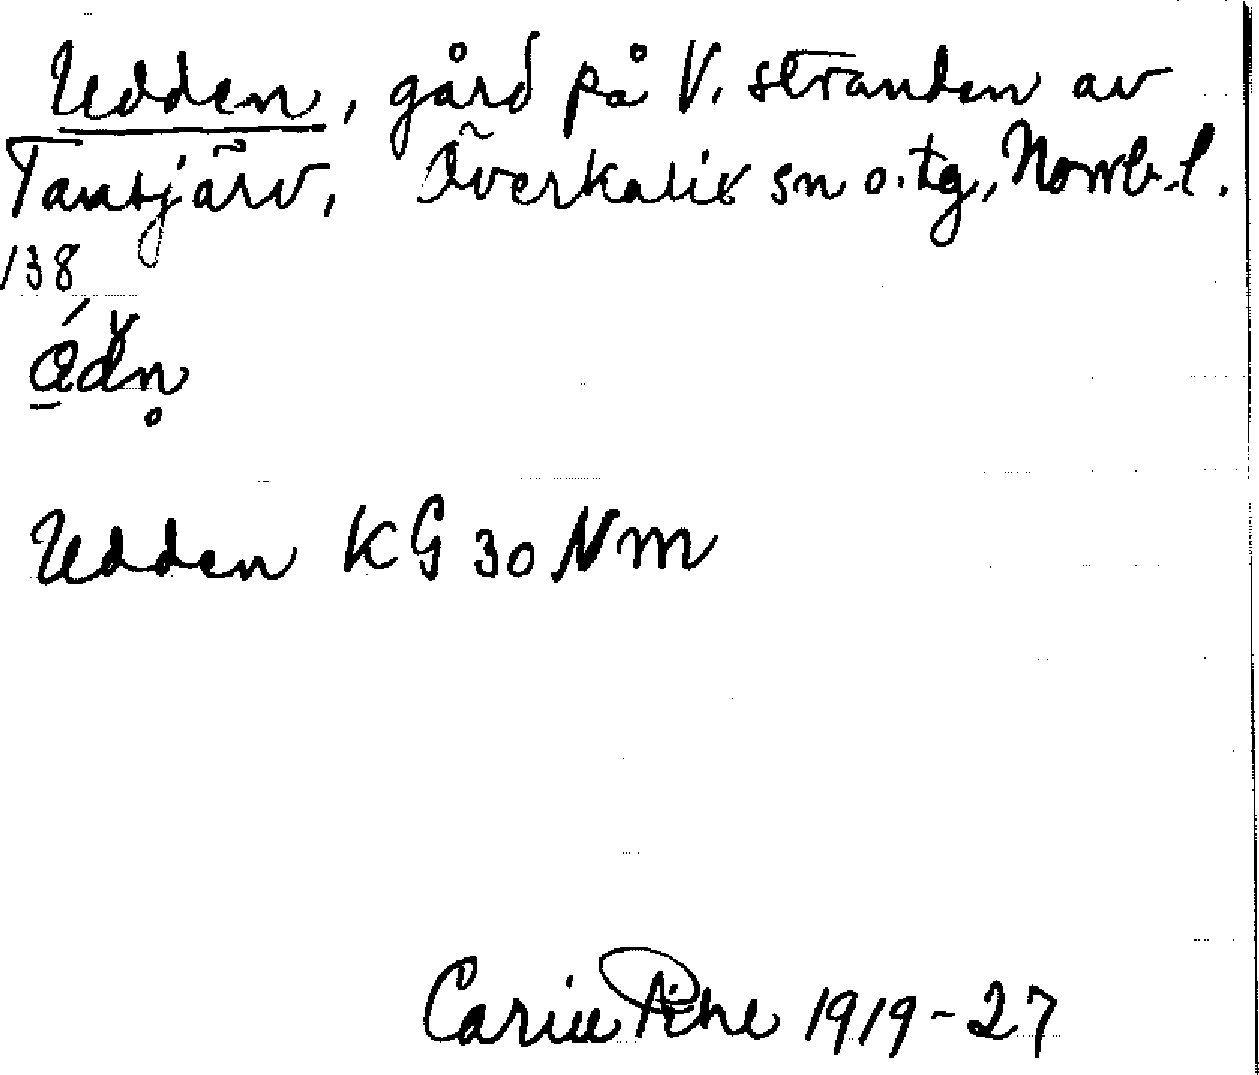 Udden, gård på V. stranden av
Tansjärv, Överkalix sn o. tg, Norrb. l.
138
Udden KG 30 Nm
Carin Pihl 1919-27